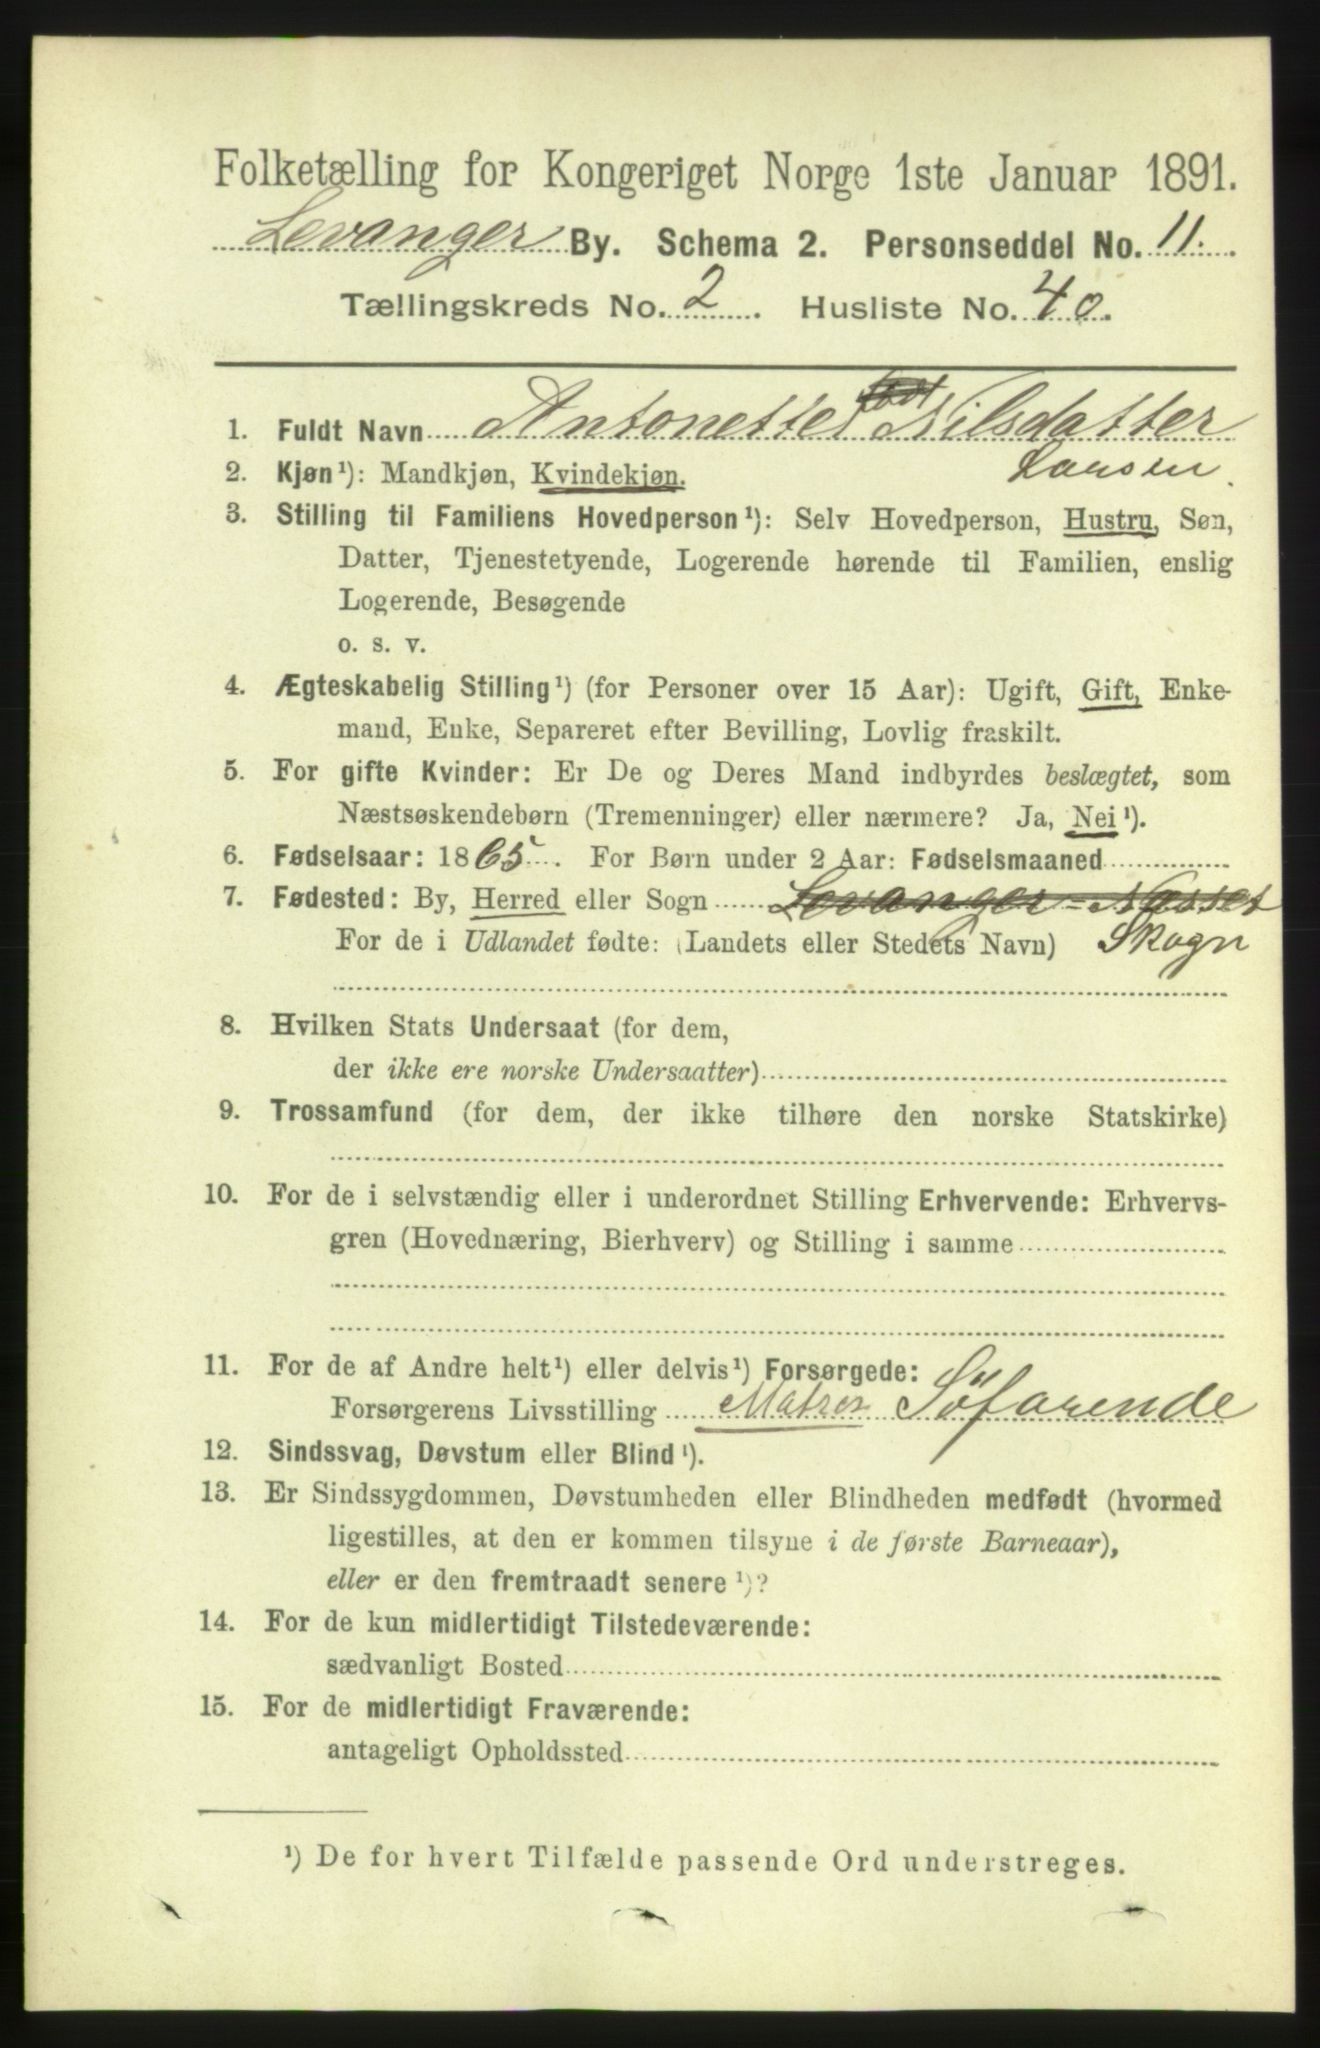 Folketælling for Kongeriget Norge 1ste Januar 1891.
Levanger By. Schema 2. Personseddel No. 11.
Tællingskreds No. 2. Husliste No. 40.
1. Fuldt Navn Antonette født Nilsdatter
Larsen.
2. Kjøn¹): Mandkjøn, Kvindekjøn.
3. Stilling til Familiens Hovedperson¹): Selv Hovedperson, Hustru, Søn,
Datter, Tjenestetyende, Logerende hørende til Familien, enslig
Logerende, Besøgende
o. s. v.
4. Ægteskabelig Stilling¹) (for Personer over 15 Aar): Ugift, Gift, Enke-
mand, Enke, Separeret efter Bevilling, Lovlig fraskilt.
5. For gifte Kvinder: Er De og Deres Mand indbyrdes beslægtet, som
Næstsøskendebørn (Tremenninger) eller nærmere? Ja, Nei¹).
6. Fødselsaar: 1865. For Børn under 2 Aar: Fødselsmaaned
7. Fødested: By, Herred eller Sogn Levanger-Næsset
For de i Udlandet fødte: (Landets eller Stedets Navn) Skogn
8. Hvilken Stats Undersaat (for dem,
der ikke ere norske Undersaatter)
9. Trossamfund (for dem, der ikke tilhøre den norske Statskirke)
10. For de i selvstændig eller i underordnet Stilling Erhvervende: Erhvervs-
gren (Hovednæring, Bierhverv) og Stilling i samme
11. For de af Andre helt¹) eller delvis¹) Forsørgede:
Forsørgerens Livsstilling Matros Söfarende
12. Sindssvag, Døvstum eller Blind¹).
13. Er Sindssygdommen, Døvstumheden eller Blindheden medfødt (hvormed
ligestilles, at den er kommen tilsyne i de første Barneaar),
eller er den fremtraadt senere¹)?
14. For de kun midlertidigt Tilstedeværende:
sædvanligt Bosted
15. For de midlertidigt Fraværende:
antageligt Opholdssted
¹) De for hvert Tilfælde passende Ord understreges.